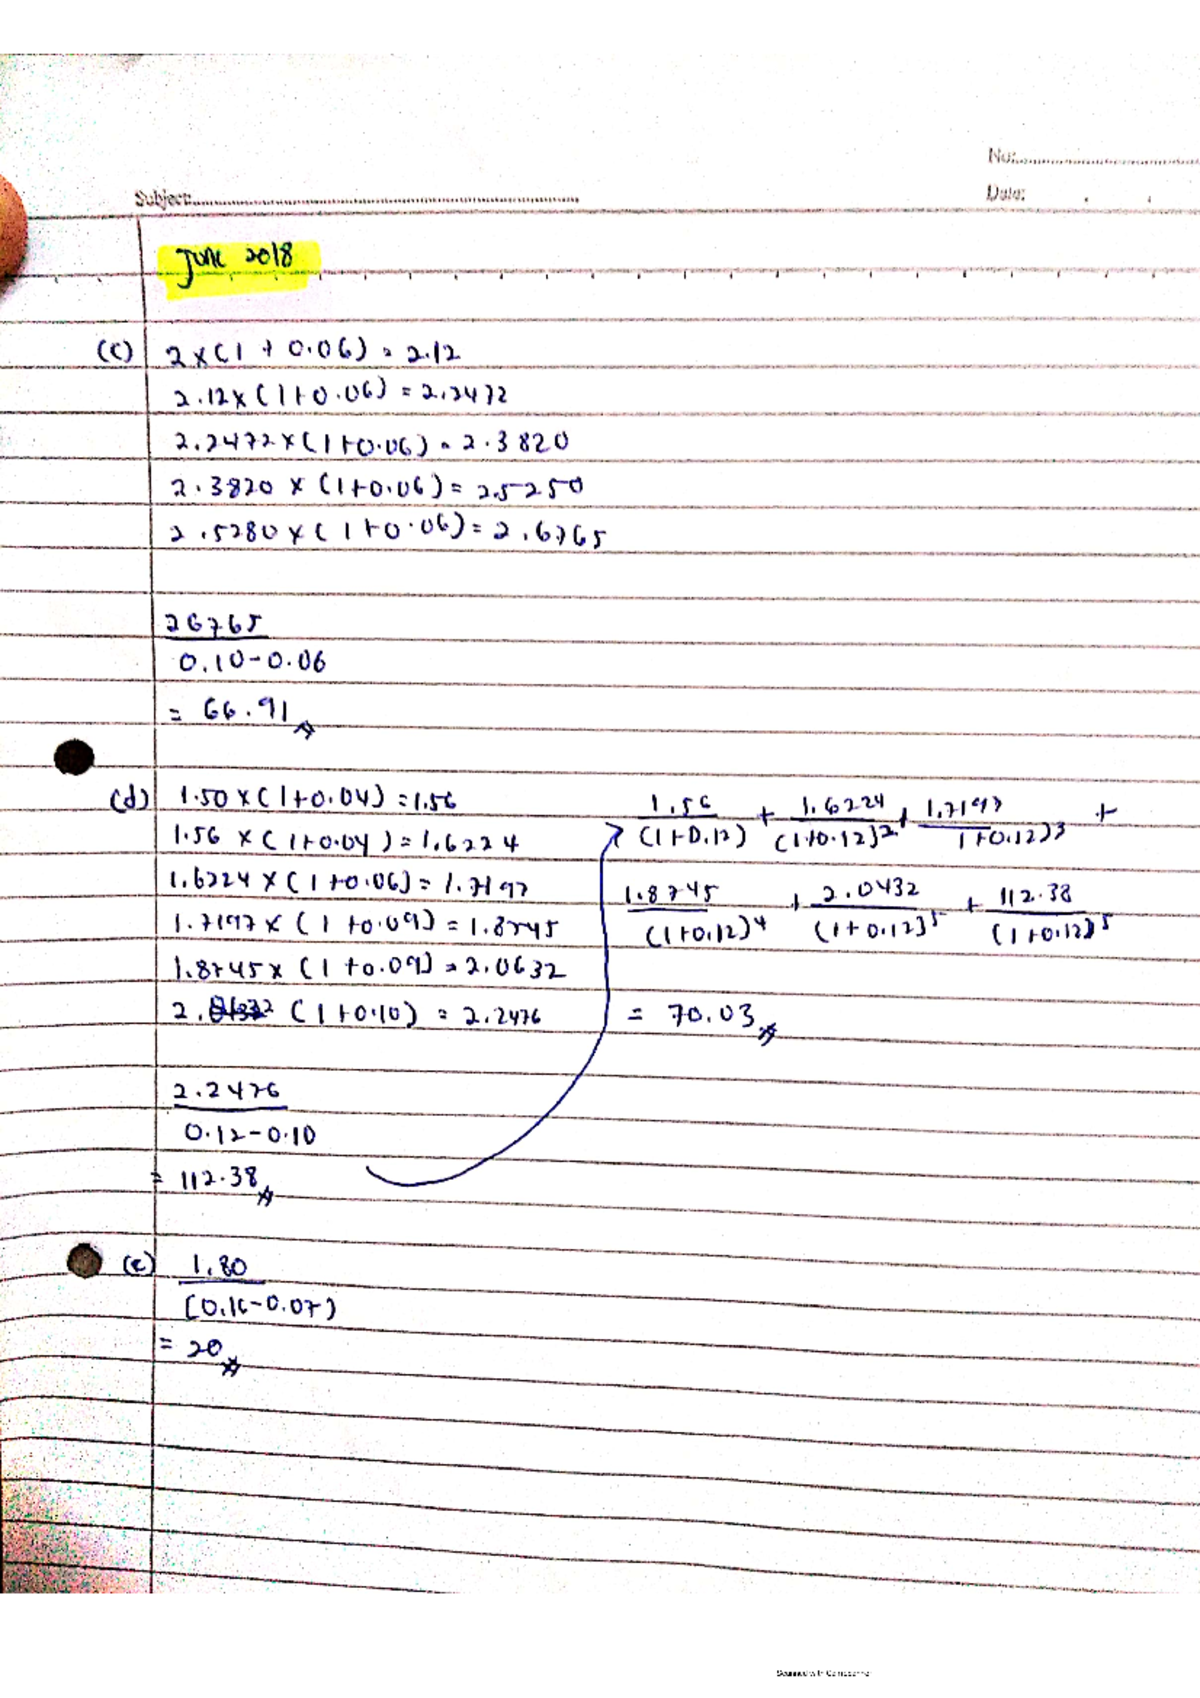 No:
Subject:
Date:
June 2018
(c) 2 x (1 + 0.06) = 2.12
2.12 x (1+0.06) = 2.2472
2.2472 x (1+0.06) = 2.3820
2.3820 x (1+0.06) = 2.5250
2.5280 x (1+0.06) = 2.6765
26765
0.10-0.06
= 66.91
(d) 1.50 x (1+0.04) = 1.56
1.56 x (1+0.04) = 1.6224
1.6224 x (1+0.06) = 1.7197
1.7197 x (1+0.09) = 1.8745
1.8745 x (1+0.09) = 2.0632
2. (1+0.10) = 2.2476
2.2476
0.12-0.10
= 112.38
1.56 + 1.6224 + 1.7197 +
(1+0.12) (1+0.12)2 1+0.12)3
1.8745 + 2.0432 + 112.38
(1+0.12)4 (1+0.12)5 (1+0.12)5
= 70.03
(e) 1.80
(0.16-0.07)
= 20
Scanned with CamScanner